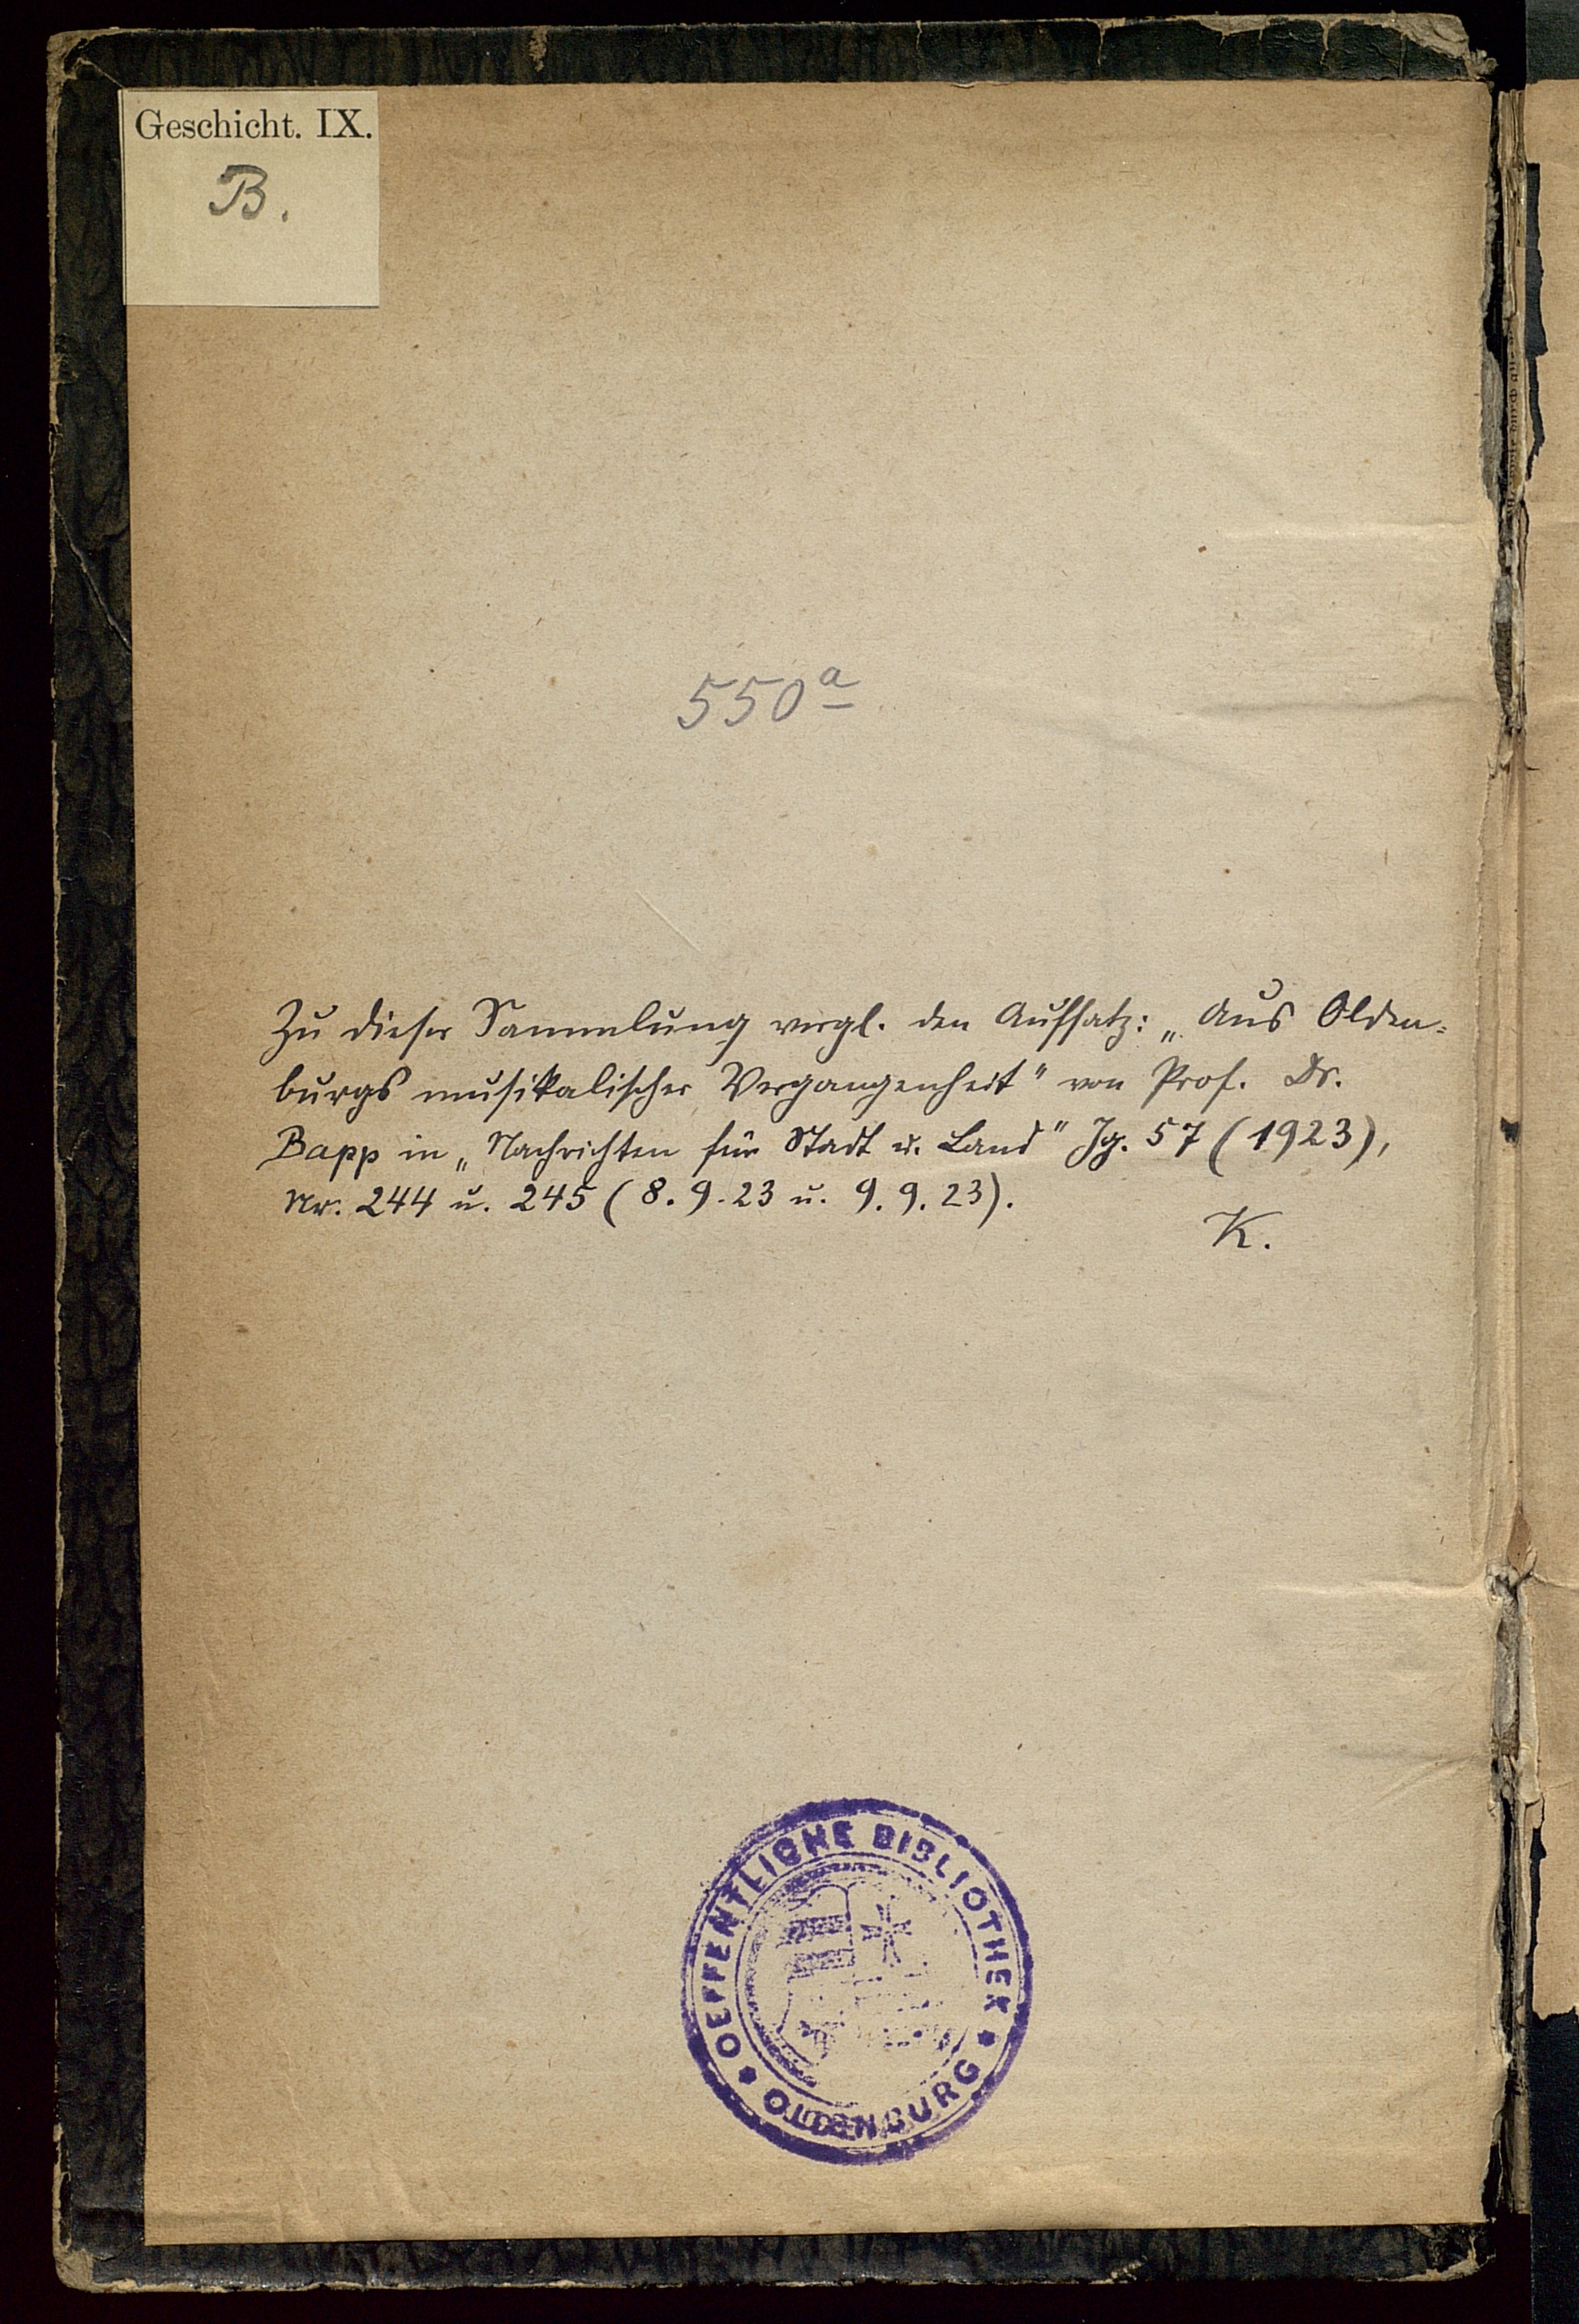 Geschicht. IX.
B.
550a
Zu dieser Sammlung vergl. den Aufsatz: „Aus Olden-
burgs musikalischer Vergangenheit" von Prof. Dr.
Bapp in „Nachrichten für Stadt u. Land" Jg. 57 (1923),
Nr. 244 u. 245 (8.9.23 u. 9.9.23).
K.
OEFFENTLICHE BIBLIOTHEK
OLDENBURG